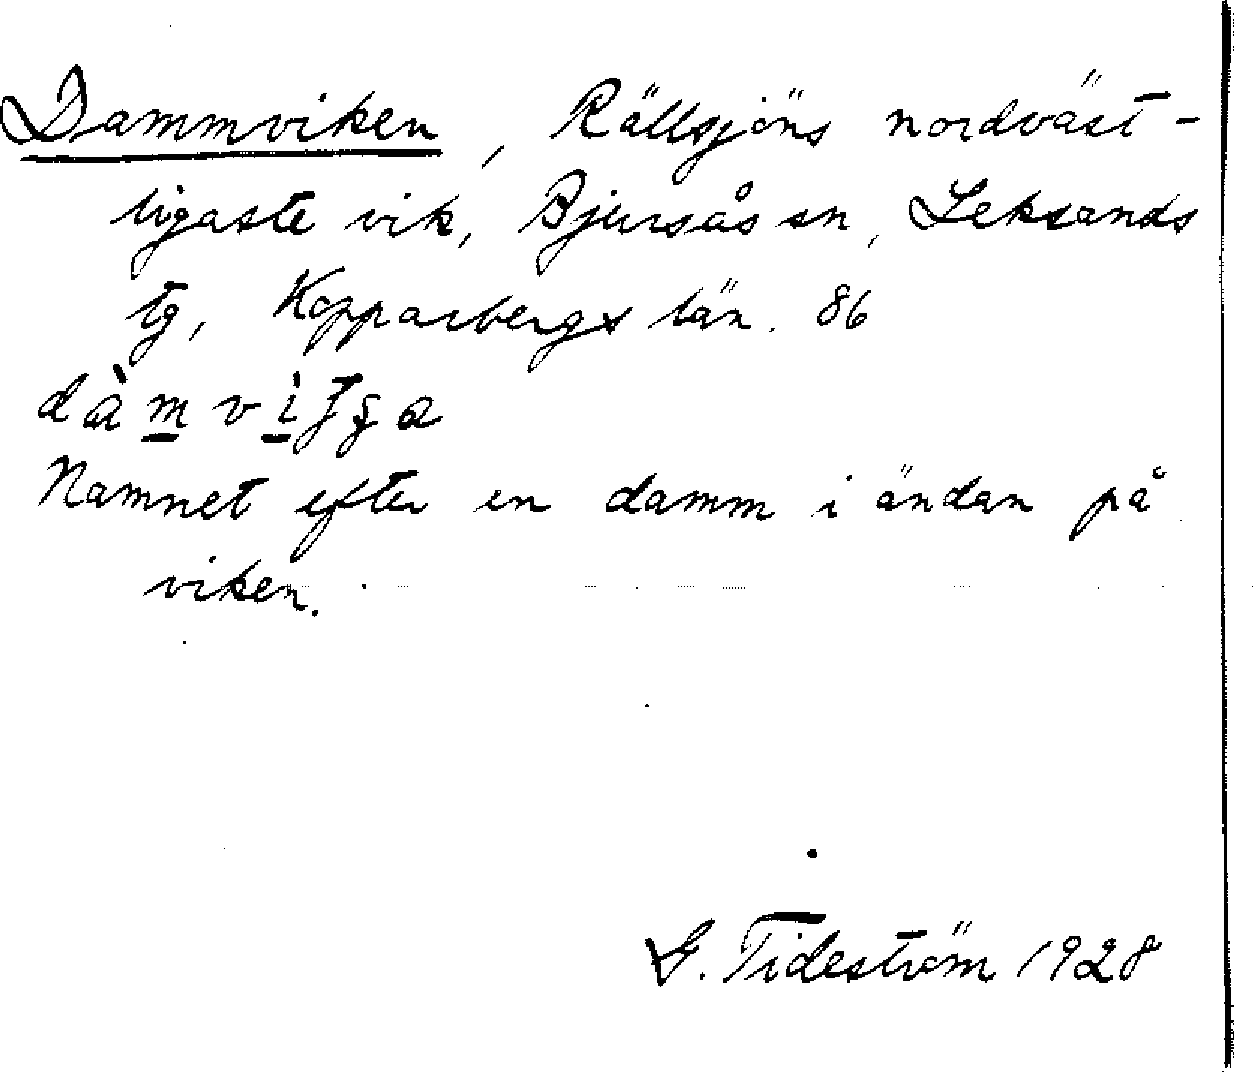 Dammviken, Rällsjöns nordväst-
ligaste vik, Bjursås sn, Leksands
tg, Kopparbergs län. 86
Namnet efter en damm i ändan på
viken.
G. Tideström 1928